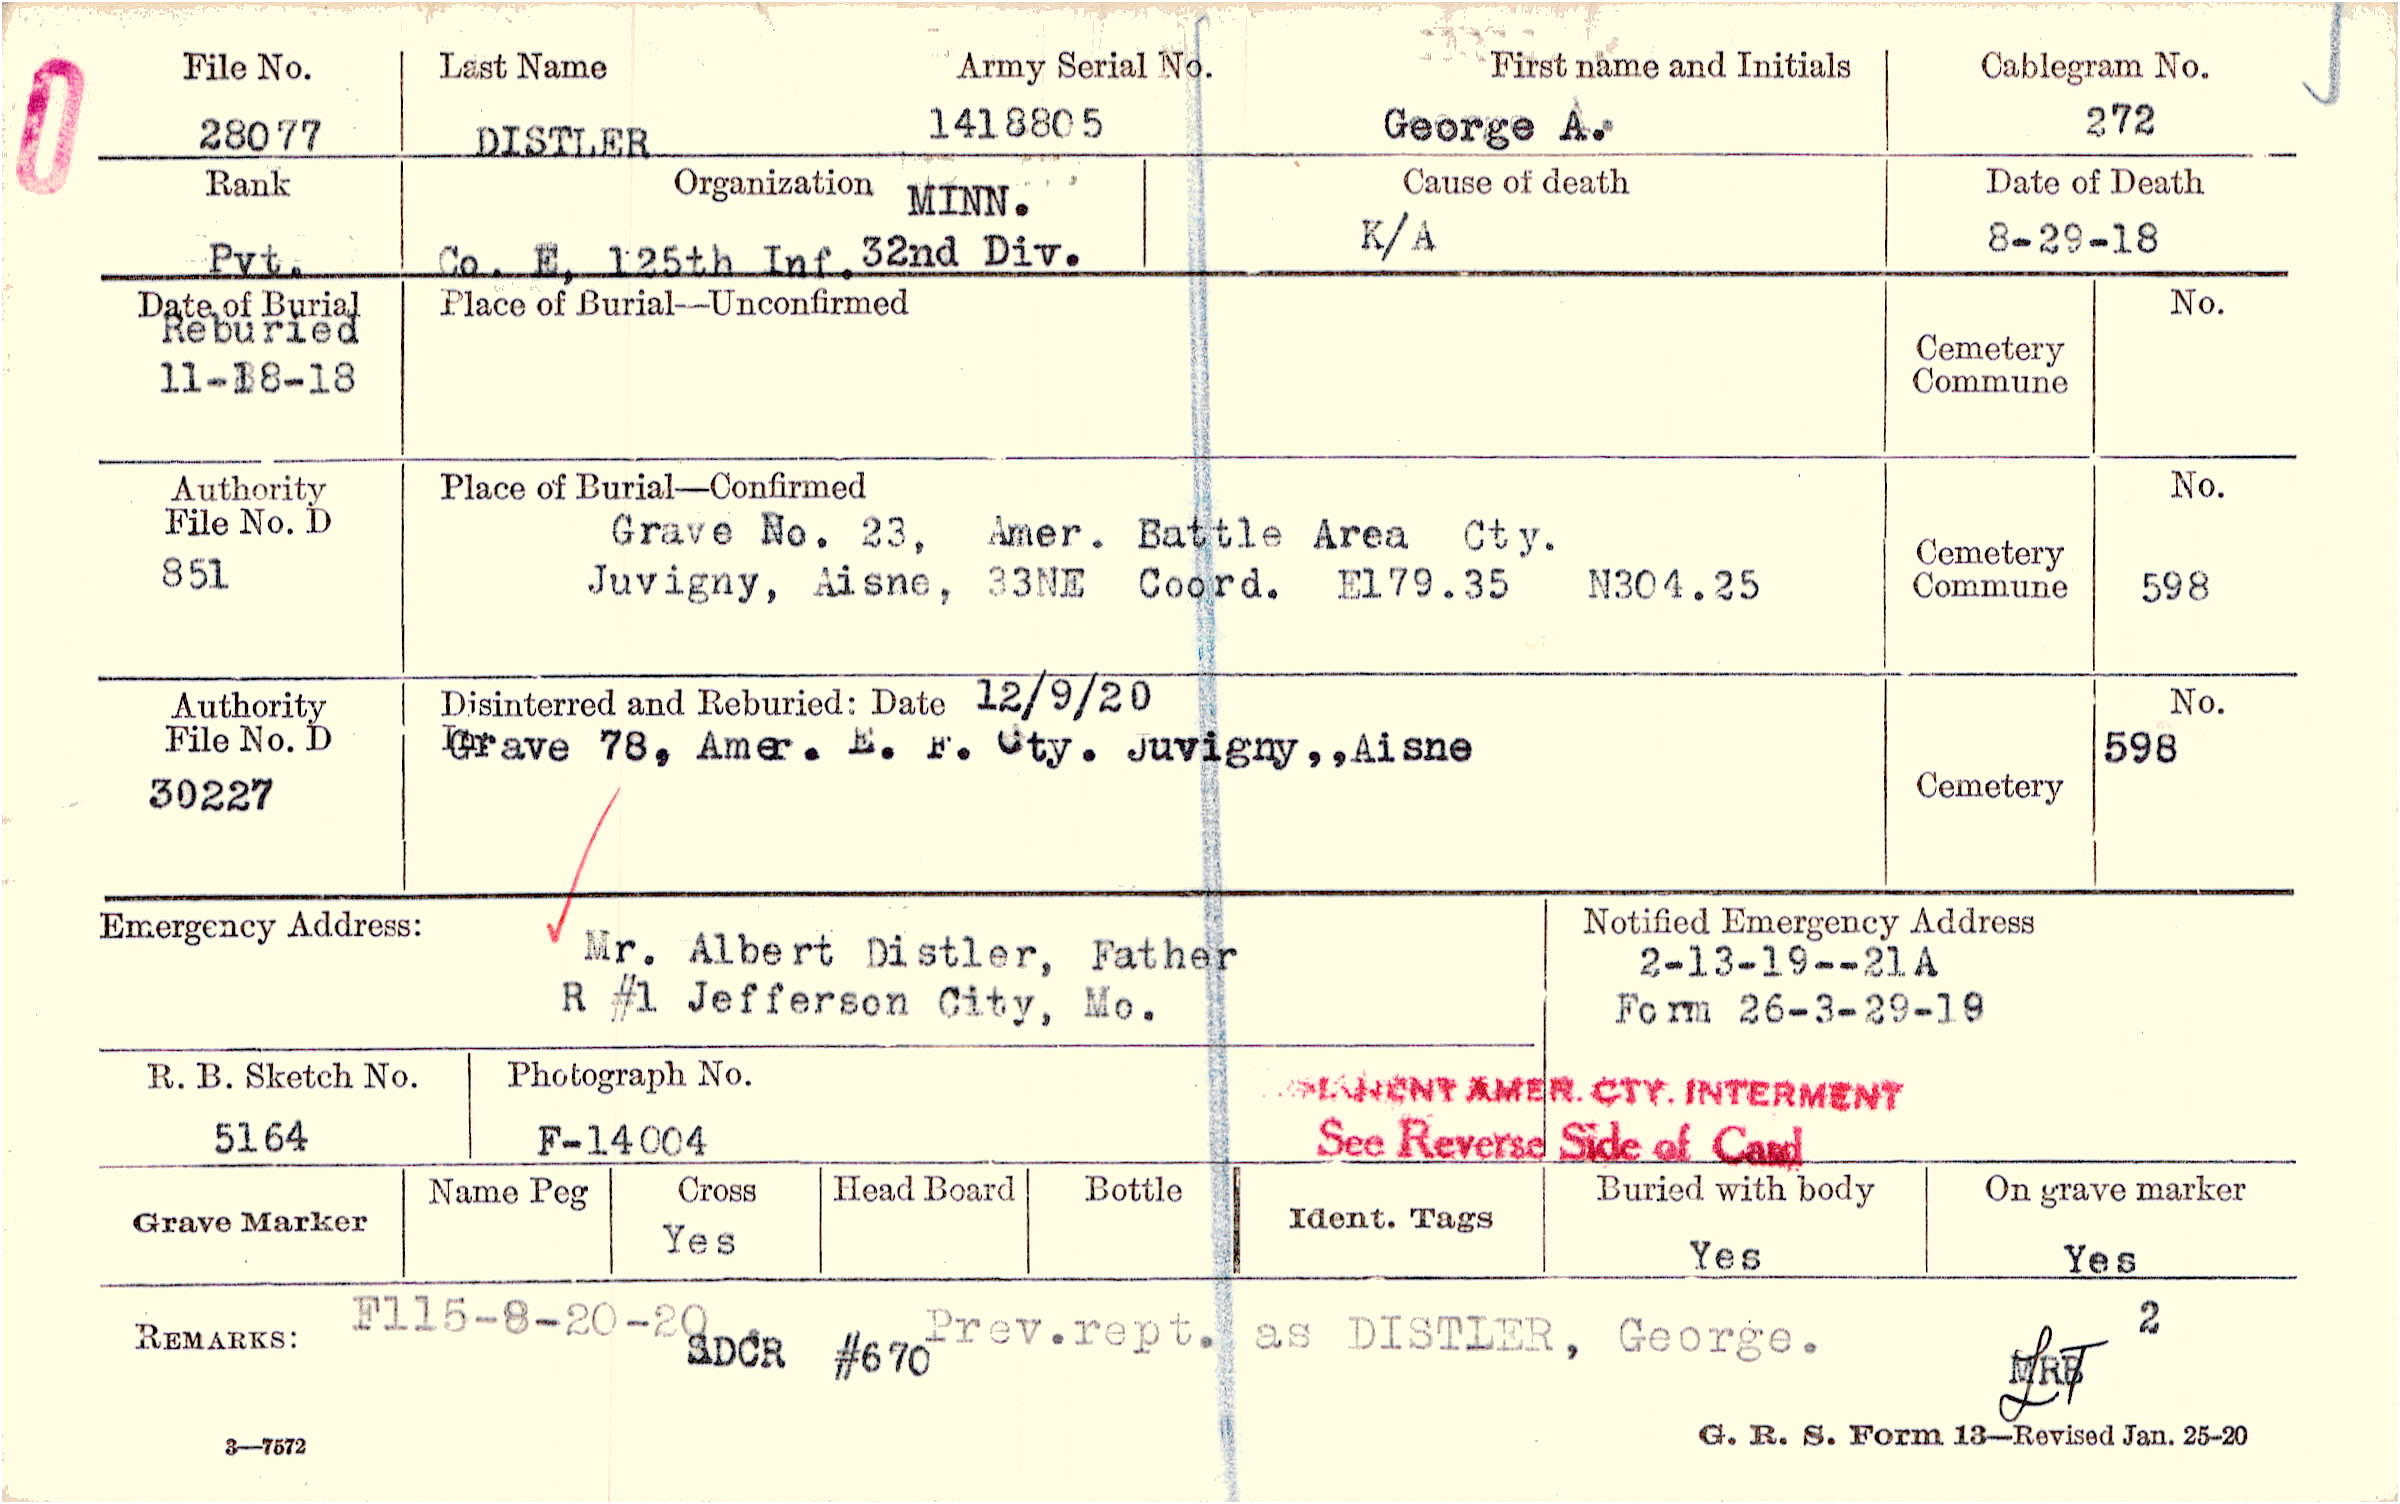 File No. Last Name Army Serial No. First name and Initials Cablegram No.
28077 DISTLER 1418805 George A. 272
Rank Organization MINN. Cause of death Date of Death
Pvt. Co. E, 125th Inf. 32nd Div. K/A 8-29-18
Date of Burial Place of Burial—Unconfirmed No.
Reburied
11-18-18
Cemetery
Commune
Authority Place of Burial—Confirmed No.
File No. D Grave No. 23, Amer. Battle Area Cty.
851 Juvigny, Aisne, 33NE Coord. E179.35 N304.25
Cemetery
Commune 598
Authority Disinterred and Reburied: Date 12/9/20 No.
File No. D Grave 78, Amer. E. F. Cty. Juvigny,,Aisne 598
30227 Cemetery
Emergency Address: Notified Emergency Address
Mr. Albert Distler, Father 2-13-19--21A
R #1 Jefferson City, Mo. Form 26-3-29-19
R. B. Sketch No. Photograph No. AMER. CTY. INTERMENT
5164 F-14004 See Reverse Side of Card
Grave Marker Name Peg Cross Head Board Bottle Ident. Tags Buried with body On grave marker
Yes Yes Yes
REMARKS: F115-8-20-20. Prev.rept. as DISTLER, George. 2
#670
3—7572 G. R. S. Form 13—Revised Jan. 25-20